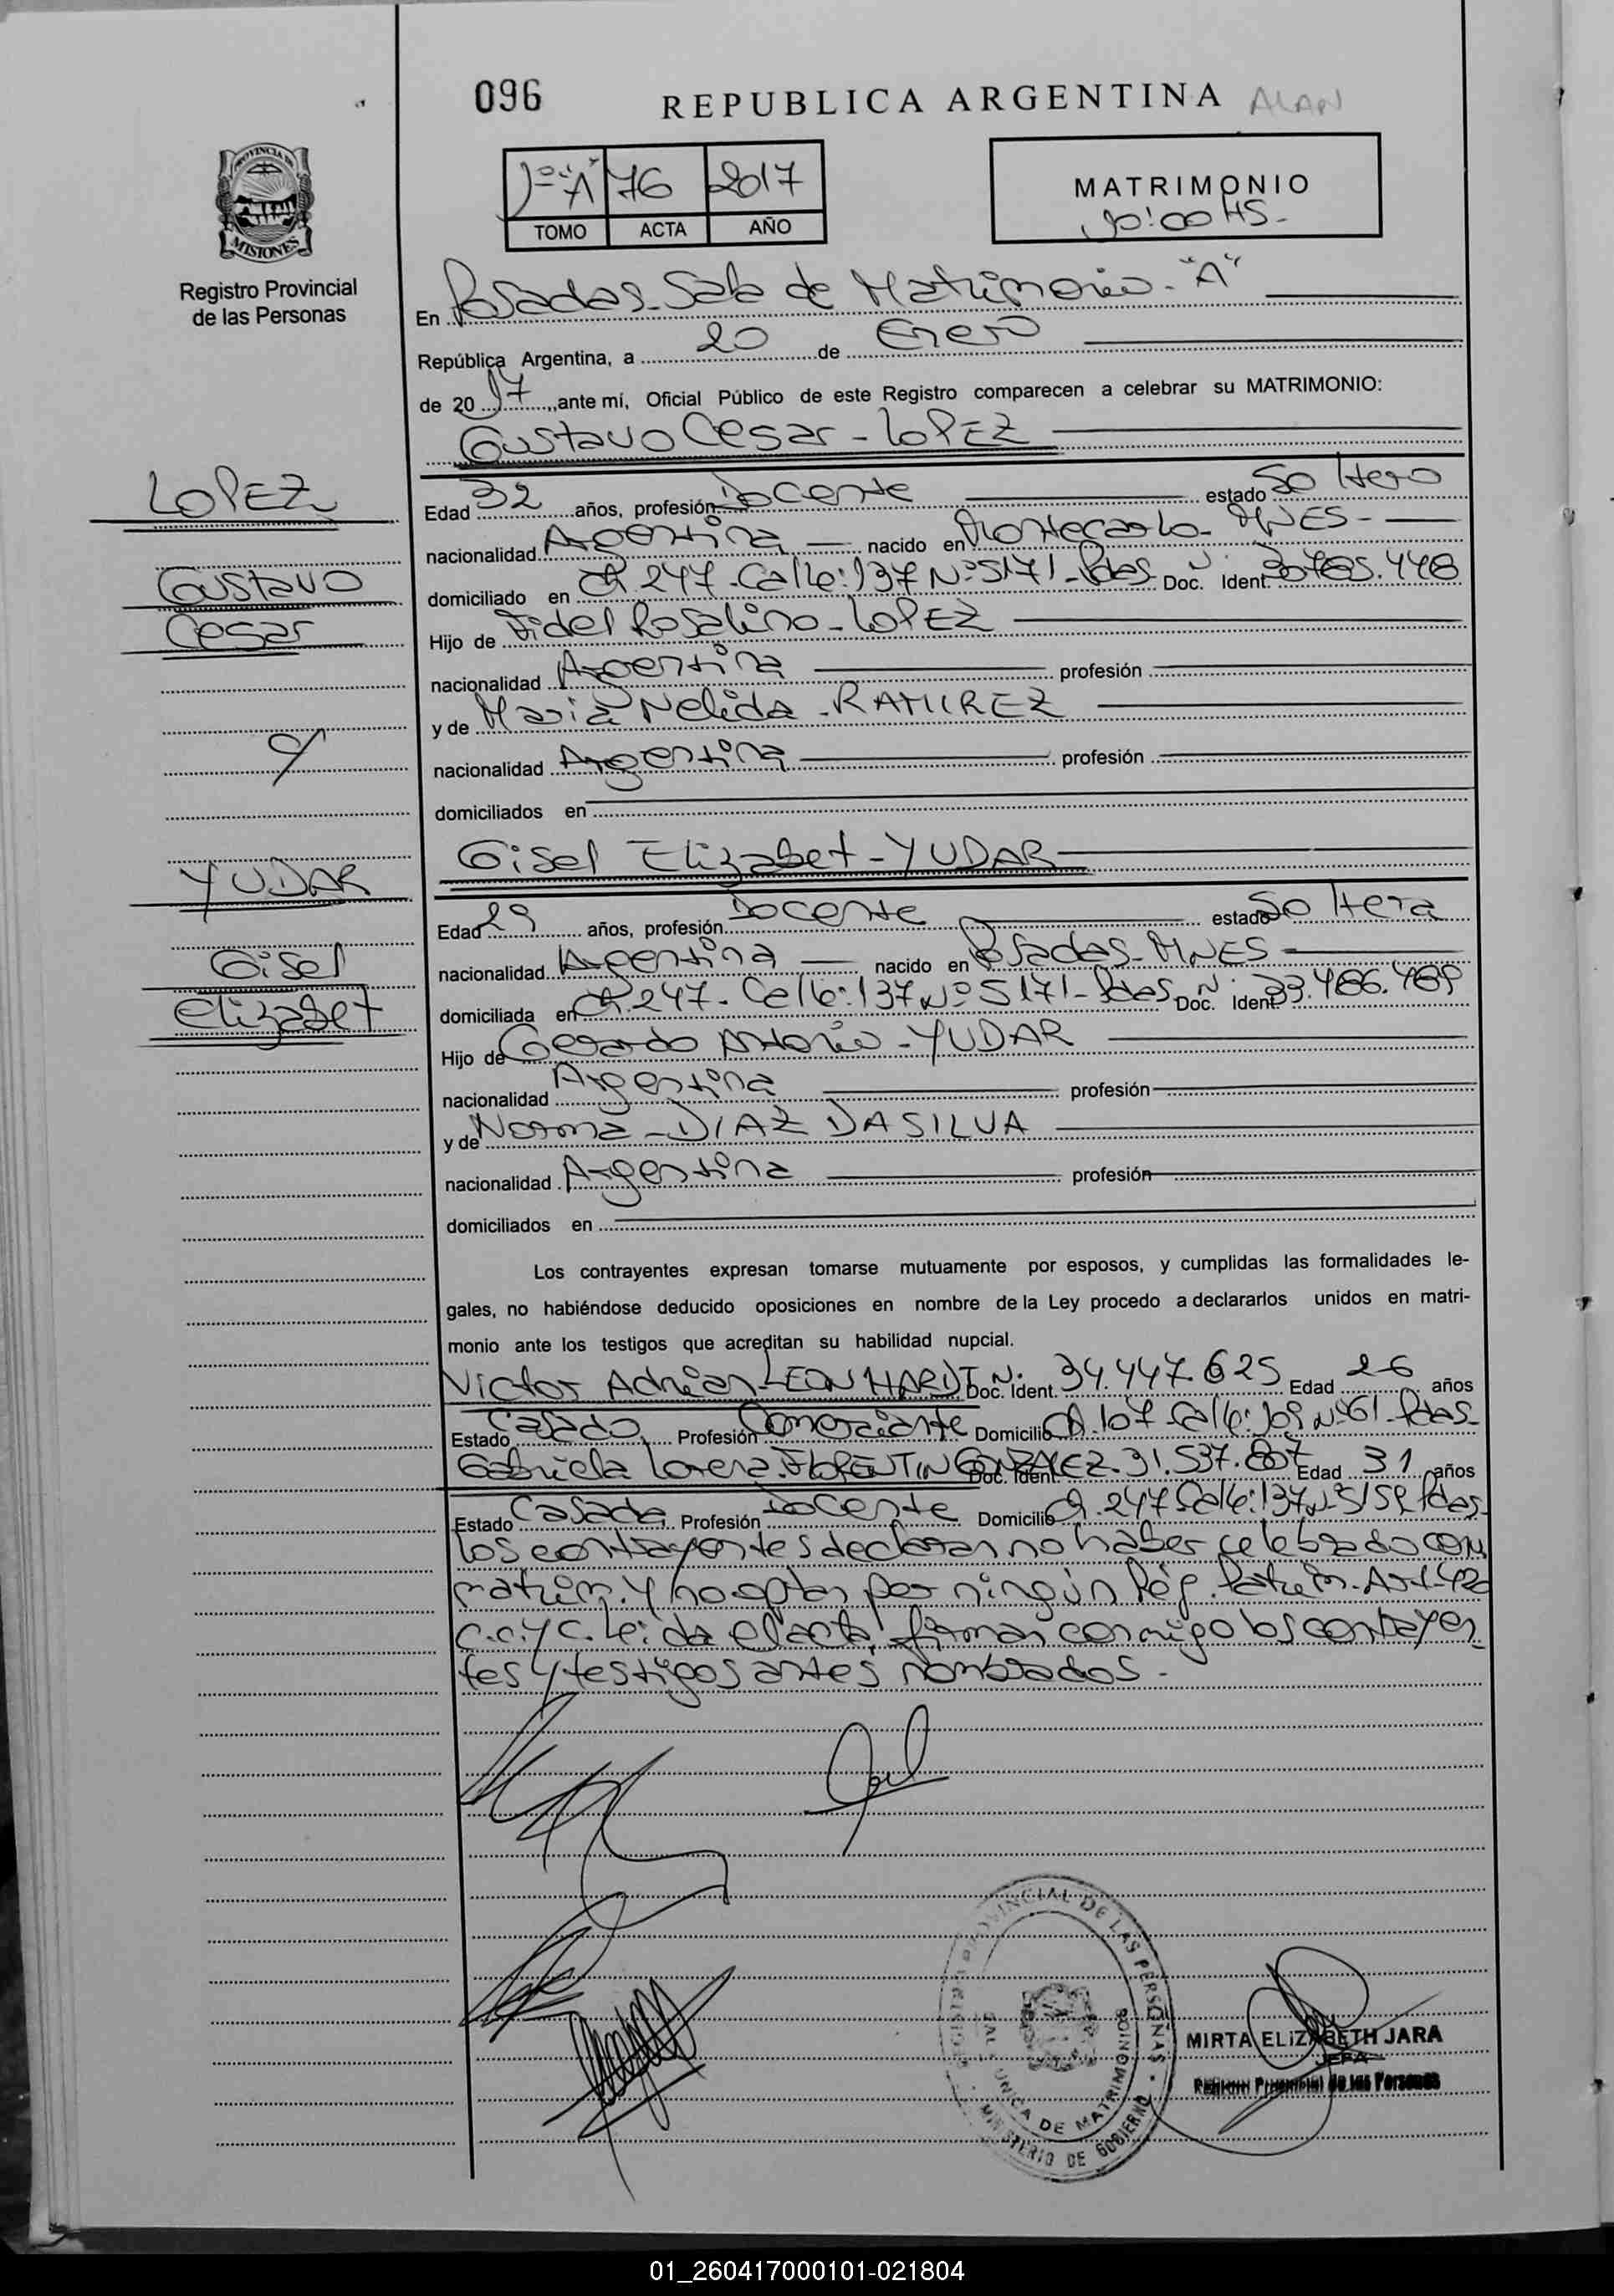 096
REPUBLICA ARGENTINA ALAN
1º "A" 76 2017
TOMO ACTA AÑO
MATRIMONIO
10:00 HS-
PROVINCIA DE
MISIONES
Registro Provincial
de las Personas
En Posadas-Sala de Matrimonio-"A"
República Argentina, a 20 de Enero
de 2017, ante mí, Oficial Público de este Registro comparecen a celebrar su MATRIMONIO:
Gustavo Cesar-LOPEZ
LOPEZ
Gustavo
Cesar
Edad 32 años, profesión Docente estado Soltero
nacionalidad Argentina nacido en Montecarlo-MNES-
domiciliado en Ch.247-Calle:137 Nº5171-Pdas. Doc. Ident.
Hijo de Fidel Rosalino-LOPEZ
nacionalidad Argentina profesión
y de Maria Nelida-RAMIREZ
c/
nacionalidad Argentina profesión
domiciliados en
Gisel Elizabet-YUDAR
YUDAR
Gisel
Elizabet
Edad 29 años, profesión Docente estado Soltera
nacionalidad Argentina nacido en Posadas-MNES
domiciliada en Ch.247-Calle:137 Nº5171-Pdas. Doc. Ident.
Hijo de Gerardo Antonio-YUDAR
nacionalidad Argentina profesión
y de Norma-DIAZ DASILVA
nacionalidad Argentina profesión
domiciliados en
Los contrayentes expresan tomarse mutuamente por esposos, y cumplidas las formalidades le-
gales, no habiéndose deducido oposiciones en nombre de la Ley procedo a declararlos unidos en matri-
monio ante los testigos que acreditan su habilidad nupcial.
Victor Adrian-LEONHARDT Doc. Ident. 34.447.625 Edad 26 años
Estado Casado Profesión Comerciante Domicilio Ch.107 Calle:109 Nº61-Pdas-
Gabriela Lorena-FLORENTIN GONZALEZ. Doc. Ident. 31.537.807 Edad 31 años
Estado Casada Profesión Docente Domicilio Ch.247 Calle:137 Pdas-
los contrayentes declaran no haber celebrado con
matrim. y no optan por ningún Rég. Patrim. Art.420
C.C.y C. Leida el acta, firman conmigo los contrayen
tes y testigos antes nombrados.-
REGISTRO PROVINCIAL DE LAS PERSONAS
SALA UNICA DE MATRIMONIOS
MINISTERIO DE GOBIERNO
MIRTA ELIZABETH JARA
JEFA
Registro Provincial de las Personas
01_260417000101-021804